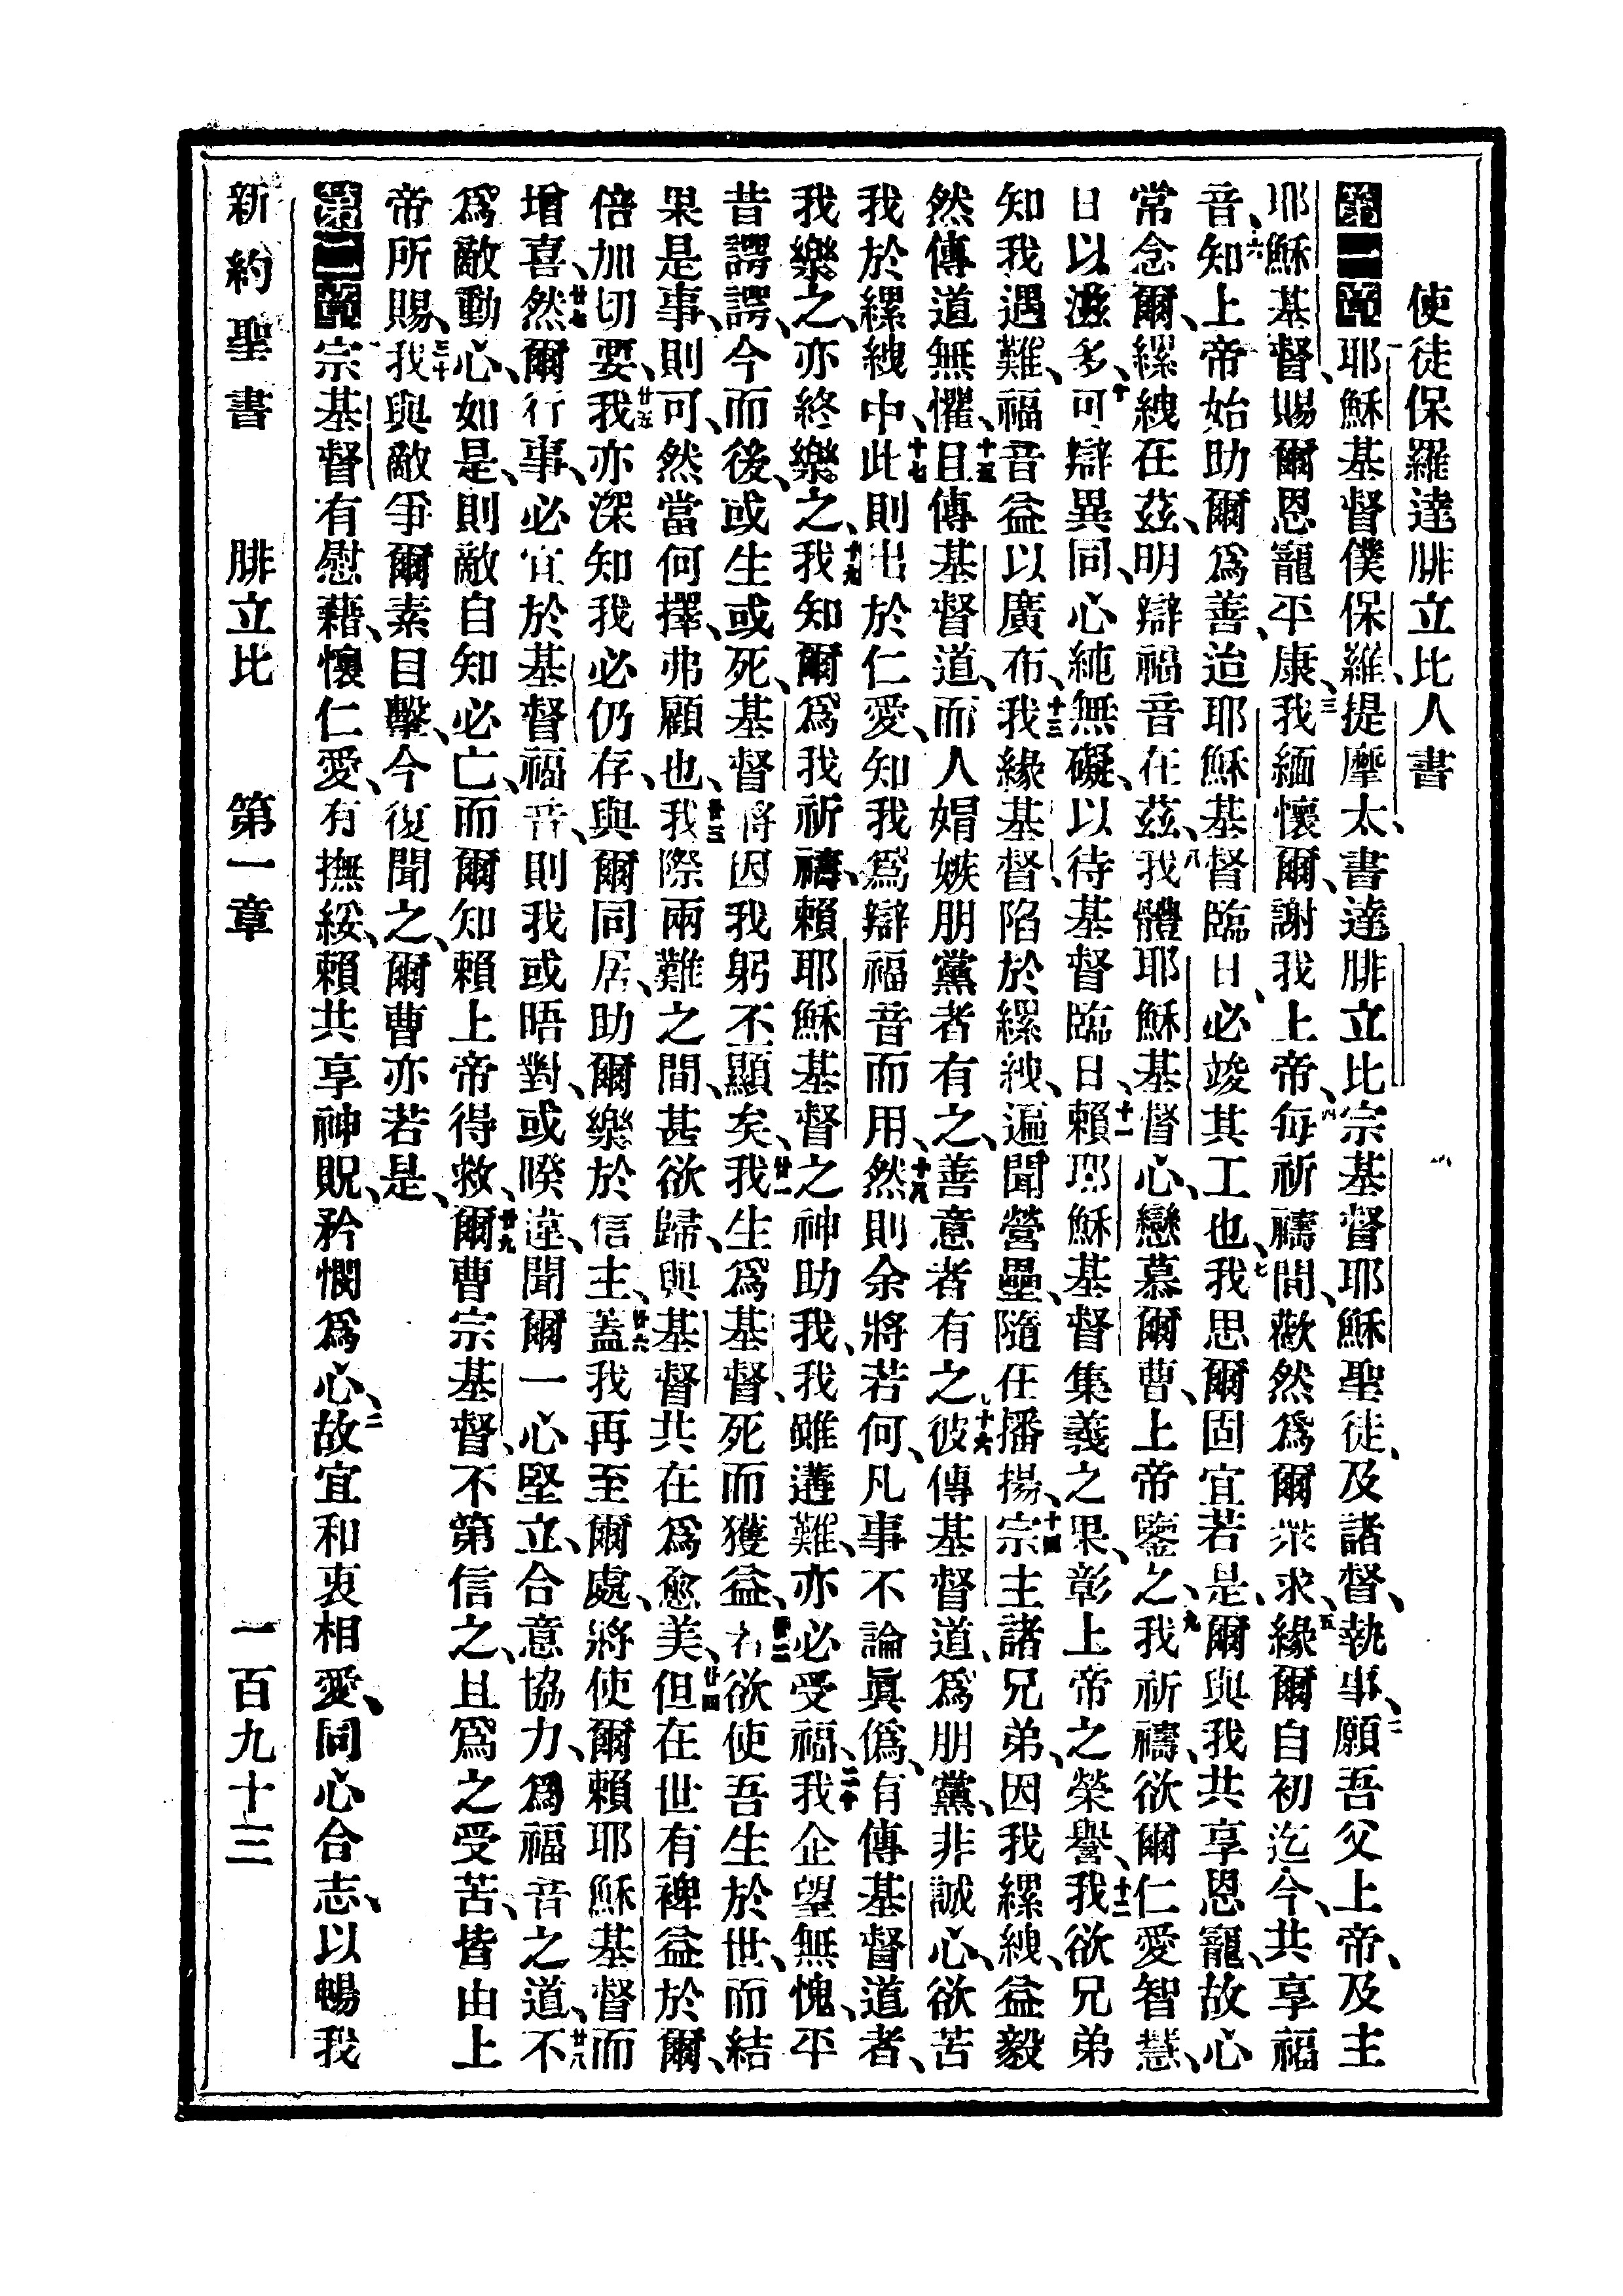 使徒保羅達腓立比人書
第一章 一耶穌基督僕保羅、提摩太、書達腓立比宗基督耶穌聖徒、及諸督、執事、二願吾父上帝、及主
耶穌基督、賜爾恩寵平康、三我緬懷爾、謝我上帝、四每祈禱間、歡然爲爾衆求、五緣爾自初迄今、共享福
音、六知上帝始助爾爲善、迨耶穌基督臨日、必竣其工也、七我思爾固宜若是、爾與我共享恩寵、故心
常念爾、縲絏在茲、明辯福音在茲、八我體耶穌基督心、戀慕爾曹、上帝鑒之、九我祈禱、欲爾仁愛智慧、
日以滋多、十可辯異同、心純無礙、以待基督臨日、十一賴耶穌基督集義之果、彰上帝之榮譽、十二我欲兄弟
知我遇難、福音益以廣布、十三我緣基督、陷於縲絏、遍聞營壘、隨在播揚、十四宗主諸兄弟、因我縲絏、益毅
然傳道無懼、十五且傳基督道、而人娼嫉朋黨者有之、善意者有之、十六彼傳基督道、爲朋黨、非誠心、欲苦
我於縲絏中、十七此則出於仁愛、知我爲辯福音而用、十八然則余將若何、凡事不論眞僞、有傳基督道者、
我樂之、亦終樂之、十九我知爾爲我祈禱、賴耶穌基督之神助我、我雖遘難、亦必受福、二十我企望無愧、平
昔諤諤、今而後、或生或死、基督將因我躬丕顯矣、廿一我生爲基督、死而獲益、廿二若欲使吾生於世、而結
果是事、則可、然當何擇、弗顧也、廿三我際兩難之間、甚欲歸、與基督共在爲愈美、廿四但在世有裨益於爾、
倍加切要、廿五我亦深知我必仍存、與爾同居、助爾樂於信主、廿六蓋我再至爾處、將使爾賴耶穌基督而
增喜、廿七然爾行事、必宜於基督福音、則我或晤對、或暌違、聞爾一心堅立、合意協力、爲福音之道、廿八不
爲敵動心、如是、則敵自知必亡、而爾知賴上帝得救、廿九爾曹宗基督、不第信之、且爲之受苦、皆由上
帝所賜、三十我與敵爭、爾素目擊、今復聞之、爾曹亦若是、
第二章 一宗基督有慰藉、懷仁愛、有撫綏、賴共享神貺、矜憫爲心、二故宜和衷相愛、同心合志、以暢我
新約聖書 腓立比 第一章 一百九十三